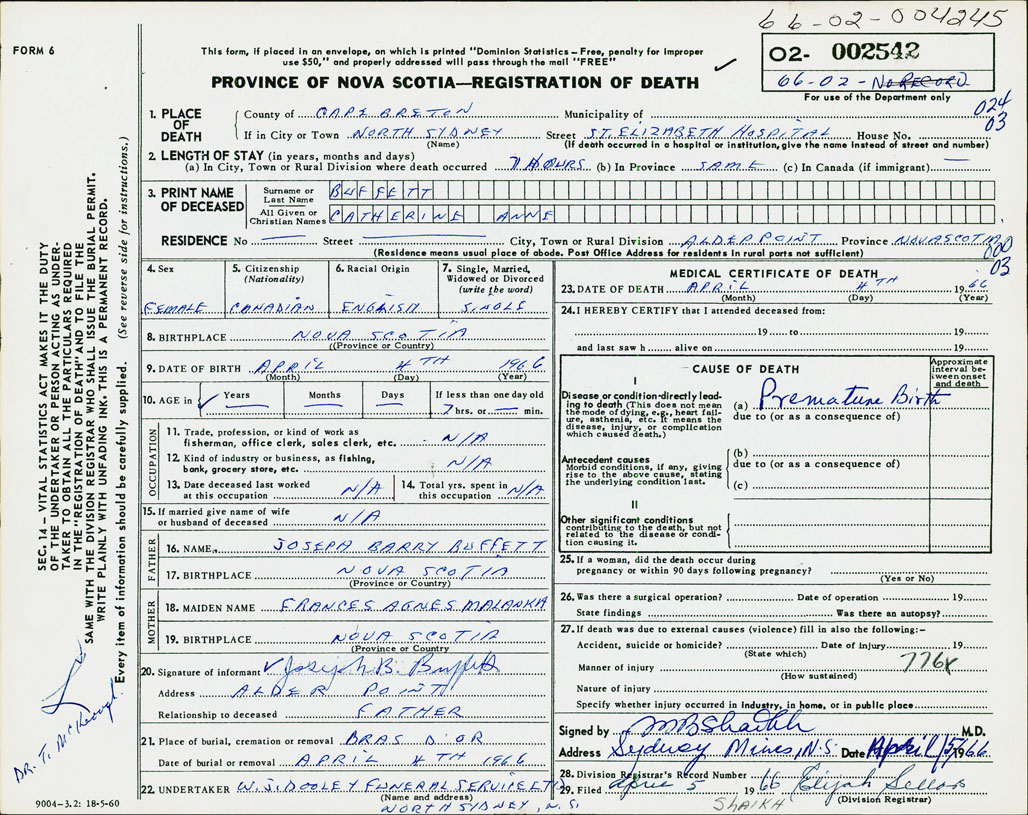 66-02-004245
FORM 6
This form, if placed in an envelope, on which is printed "Dominion Statistics – Free, penalty for improper
use $50," and properly addressed will pass through the mail "FREE"
02- 002542
66-02- NO RECORD
For use of the Department only
PROVINCE OF NOVA SCOTIA—REGISTRATION OF DEATH
024
03
1. PLACE OF DEATH
County of CAPE BRETON Municipality of
If in City or Town NORTH SYDNEY Street ST. ELIZABETH HOSPITAL House No.
(Name) (If death occurred in a hospital or institution, give the name instead of street and number)
2. LENGTH OF STAY (in years, months and days)
(a) In City, Town or Rural Division where death occurred 7 HOURS (b) In Province SAME (c) In Canada (if immigrant) —
3. PRINT NAME OF DECEASED
Surname or Last Name BUFFETT
All Given or Christian Names CATHERINE ANNE
RESIDENCE No — Street — City, Town or Rural Division ALDER POINT Province NOVA SCOTIA
(Residence means usual place of abode. Post Office Address for residents in rural parts not sufficient)
000
03
4. Sex
FEMALE
5. Citizenship
(Nationality)
CANADIAN
6. Racial Origin
ENGLISH
7. Single, Married,
Widowed or Divorced
(write the word)
SINGLE
8. BIRTHPLACE NOVA SCOTIA
((Province or Country)
9. DATE OF BIRTH APRIL 4TH 1966
(Month) (Day) (Year)
10. AGE in Years — Months — Days — If less than one day old
7 hrs. or — min.
OCCUPATION
11. Trade, profession, or kind of work as
fisherman, office clerk, sales clerk, etc. N/A
12. Kind of industry or business, as fishing,
bank, grocery store, etc. N/A
13. Date deceased last worked
at this occupation N/A
14. Total yrs. spent in
this occupation N/A
15. If married give name of wife
or husband of deceased N/A
FATHER
16. NAME JOSEPH BARRY BUFFETT
17. BIRTHPLACE NOVA SCOTIA
(Province or Country)
MOTHER
18. MAIDEN NAME FRANCES AGNES
19. BIRTHPLACE NOVA SCOTIA
(Province or Country)
20. Signature of informant Joseph B. Buffett
Address ALDER POINT
Relationship to deceased FATHER
21. Place of burial, cremation or removal BRAS D'OR
Date of burial or removal APRIL 4TH 1966
22. UNDERTAKER W.J. DOOLEY FUNERAL SERVICE LTD
(Name and address)
NORTH SYDNEY, N.S.
MEDICAL CERTIFICATE OF DEATH
23. DATE OF DEATH APRIL 4TH 1966
(Month) (Day) (Year)
24. I HEREBY CERTIFY that I attended deceased from:
19 to 19
and last saw h alive on 19
CAUSE OF DEATH
Approximate
interval be-
tween onset
and death
I
Disease or condition directly lead-
ing to death (This does not mean
the mode of dying, e.g., heart fail-
ure, asthenia, etc. It means the
disease, injury, or complication
which caused death.)
(a) Premature Birth
due to (or as a consequence of)
Antecedent causes
Morbid conditions, if any, giving
rise to the above cause, stating
the underlying condition last.
(b)
due to (or as a consequence of)
(c)
II
Other significant conditions
contributing to the death, but not
related to the disease or condi-
tion causing it.
25. If a woman, did the death occur during
pregnancy or within 90 days following pregnancy?
(Yes or No)
26. Was there a surgical operation? Date of operation 19
State findings Was there an autopsy?
27. If death was due to external causes (violence) fill in also the following:–
Accident, suicide or homicide? Date of injury 19
(State which)
776X
Manner of injury
(How sustained)
Nature of injury
Specify whether injury occurred in industry, in home, or in public place
Signed by M B Shaikh M.D.
Address Sydney Mines, N.S. Date April 15/1966
28. Division Registrar's Record Number
29. Filed April 5 1966 Elijah Sellars
(Division Registrar)
SHAIKH
SEC. 14 – VITAL STATISTICS ACT MAKES IT THE DUTY
OF THE UNDERTAKER OR PERSON ACTING AS UNDER-
TAKER TO OBTAIN ALL THE PARTICULARS REQUIRED
IN THE "REGISTRATION OF DEATH" AND TO FILE THE
SAME WITH THE DIVISION REGISTRAR WHO SHALL ISSUE THE BURIAL PERMIT.
WRITE PLAINLY WITH UNFADING INK. THIS IS A PERMANENT RECORD.
Every item of information should be carefully supplied. (See reverse side for instructions.)
DR. T. McKeough
9004-3.2: 18-5-60